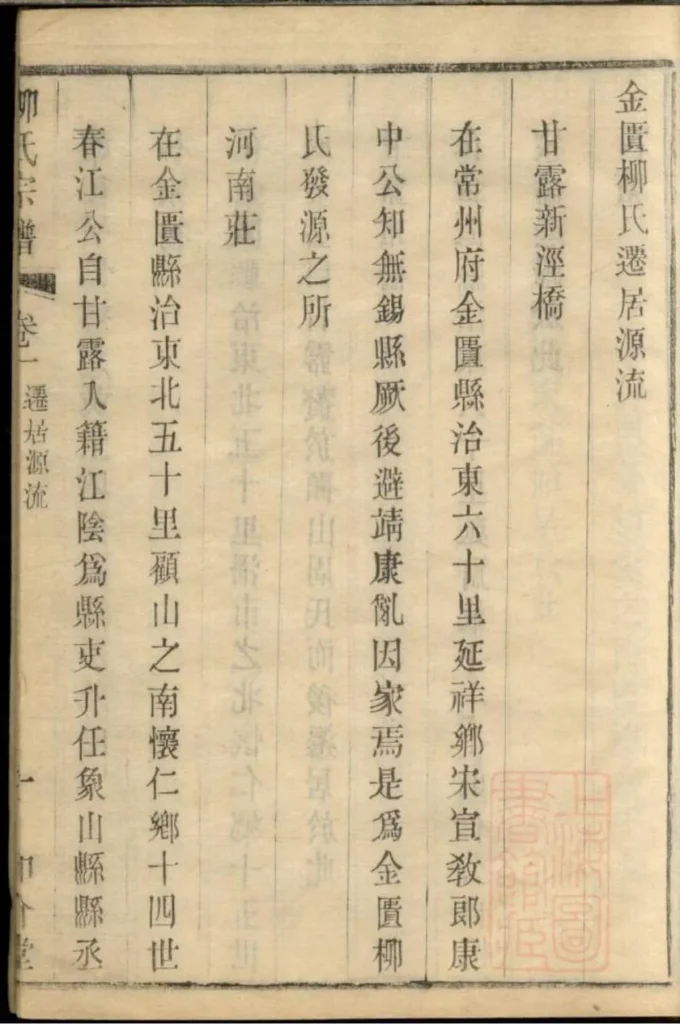 金匱柳氏遷居源流
甘露新涇橋
在常州府金匱縣治東六十里延祥鄉宋宣教郎康
中公知無錫縣厥後避靖康亂因家焉是為金匱柳
氏發源之所
河南莊
在金匱縣治東北五十里顧山之南懷仁鄉十四世
春江公自甘露入籍江陰為縣吏升任象山縣縣丞
柳氏宗譜
卷一
遷居源流
一
上海圖書館藏